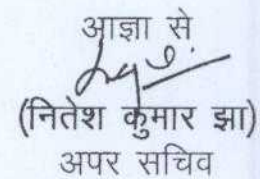 आज्ञा से
(नितेश कुमार झा)
अपर सचिव